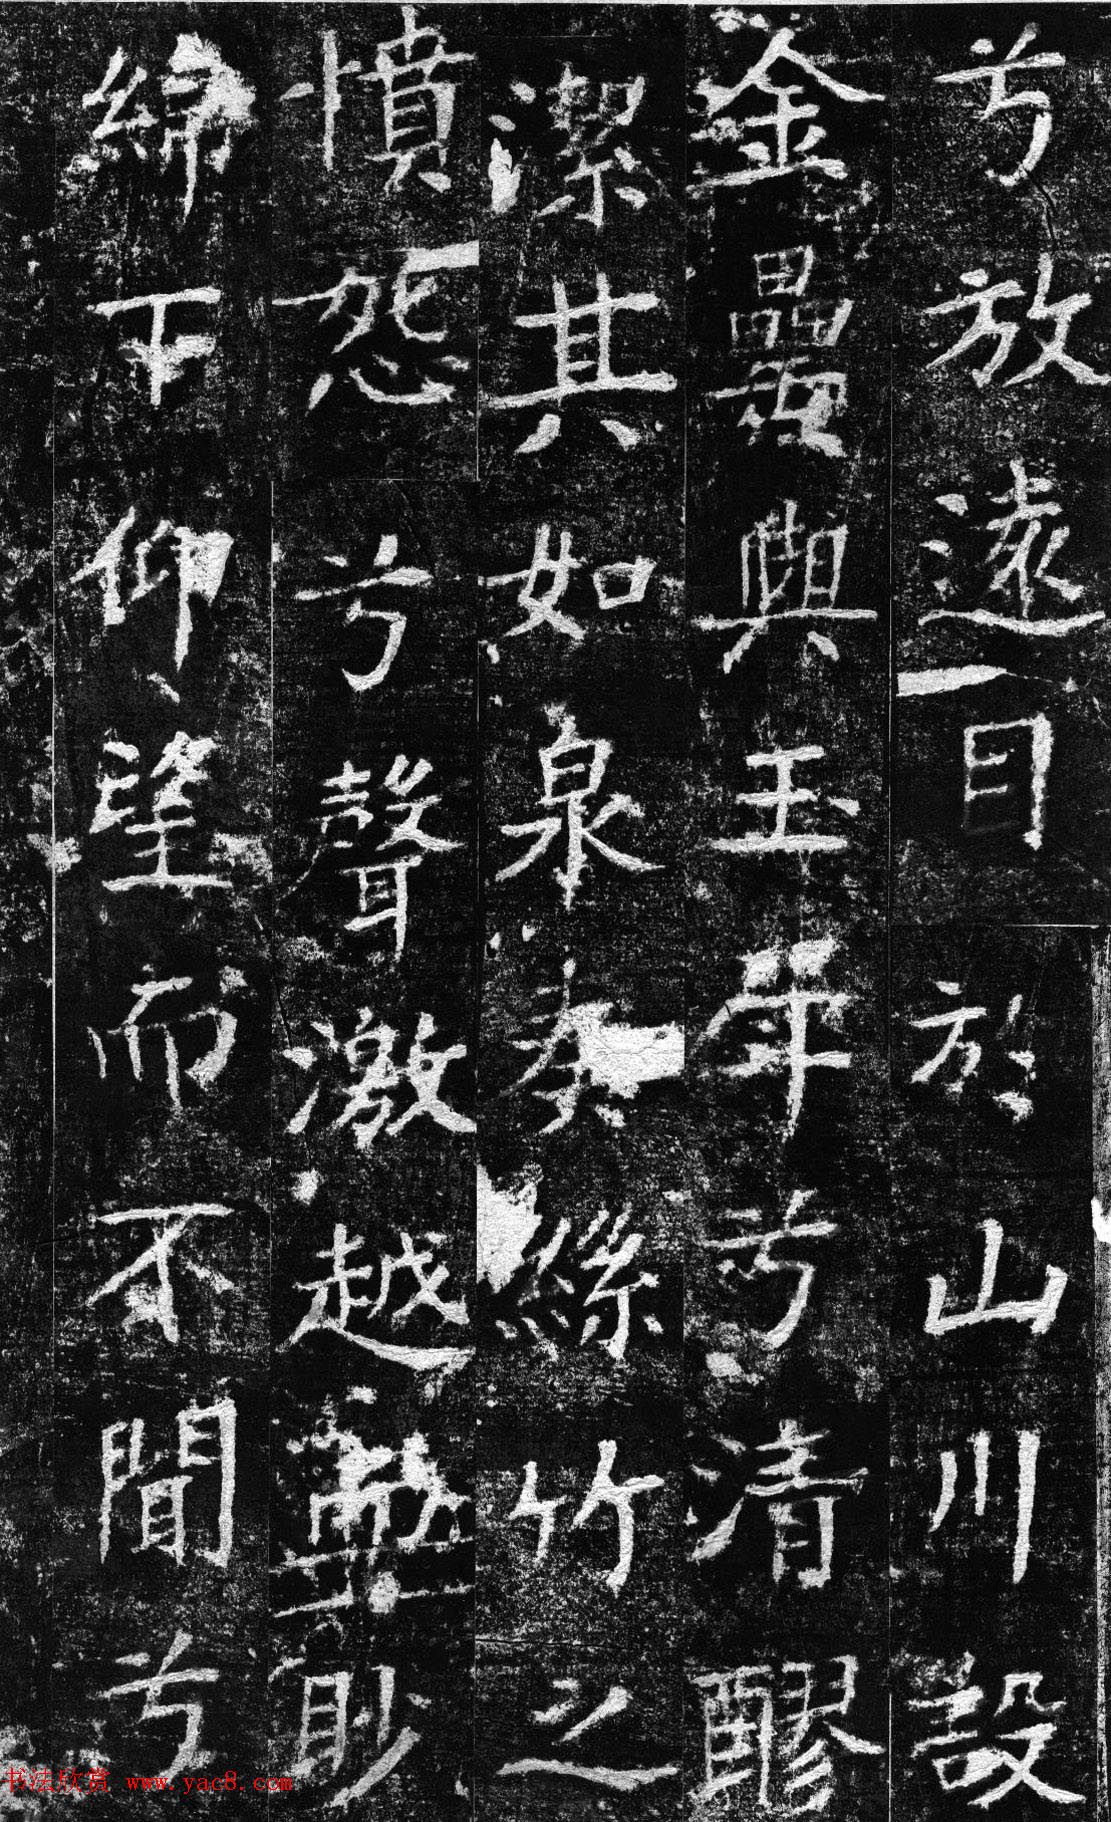 兮放遠目於山川設
金罍與玉斝兮清醪
潔其如泉奏絲竹之
憤怨兮聲激越
眇
綿下仰望而不聞兮
书法欣赏 www.yac8.com